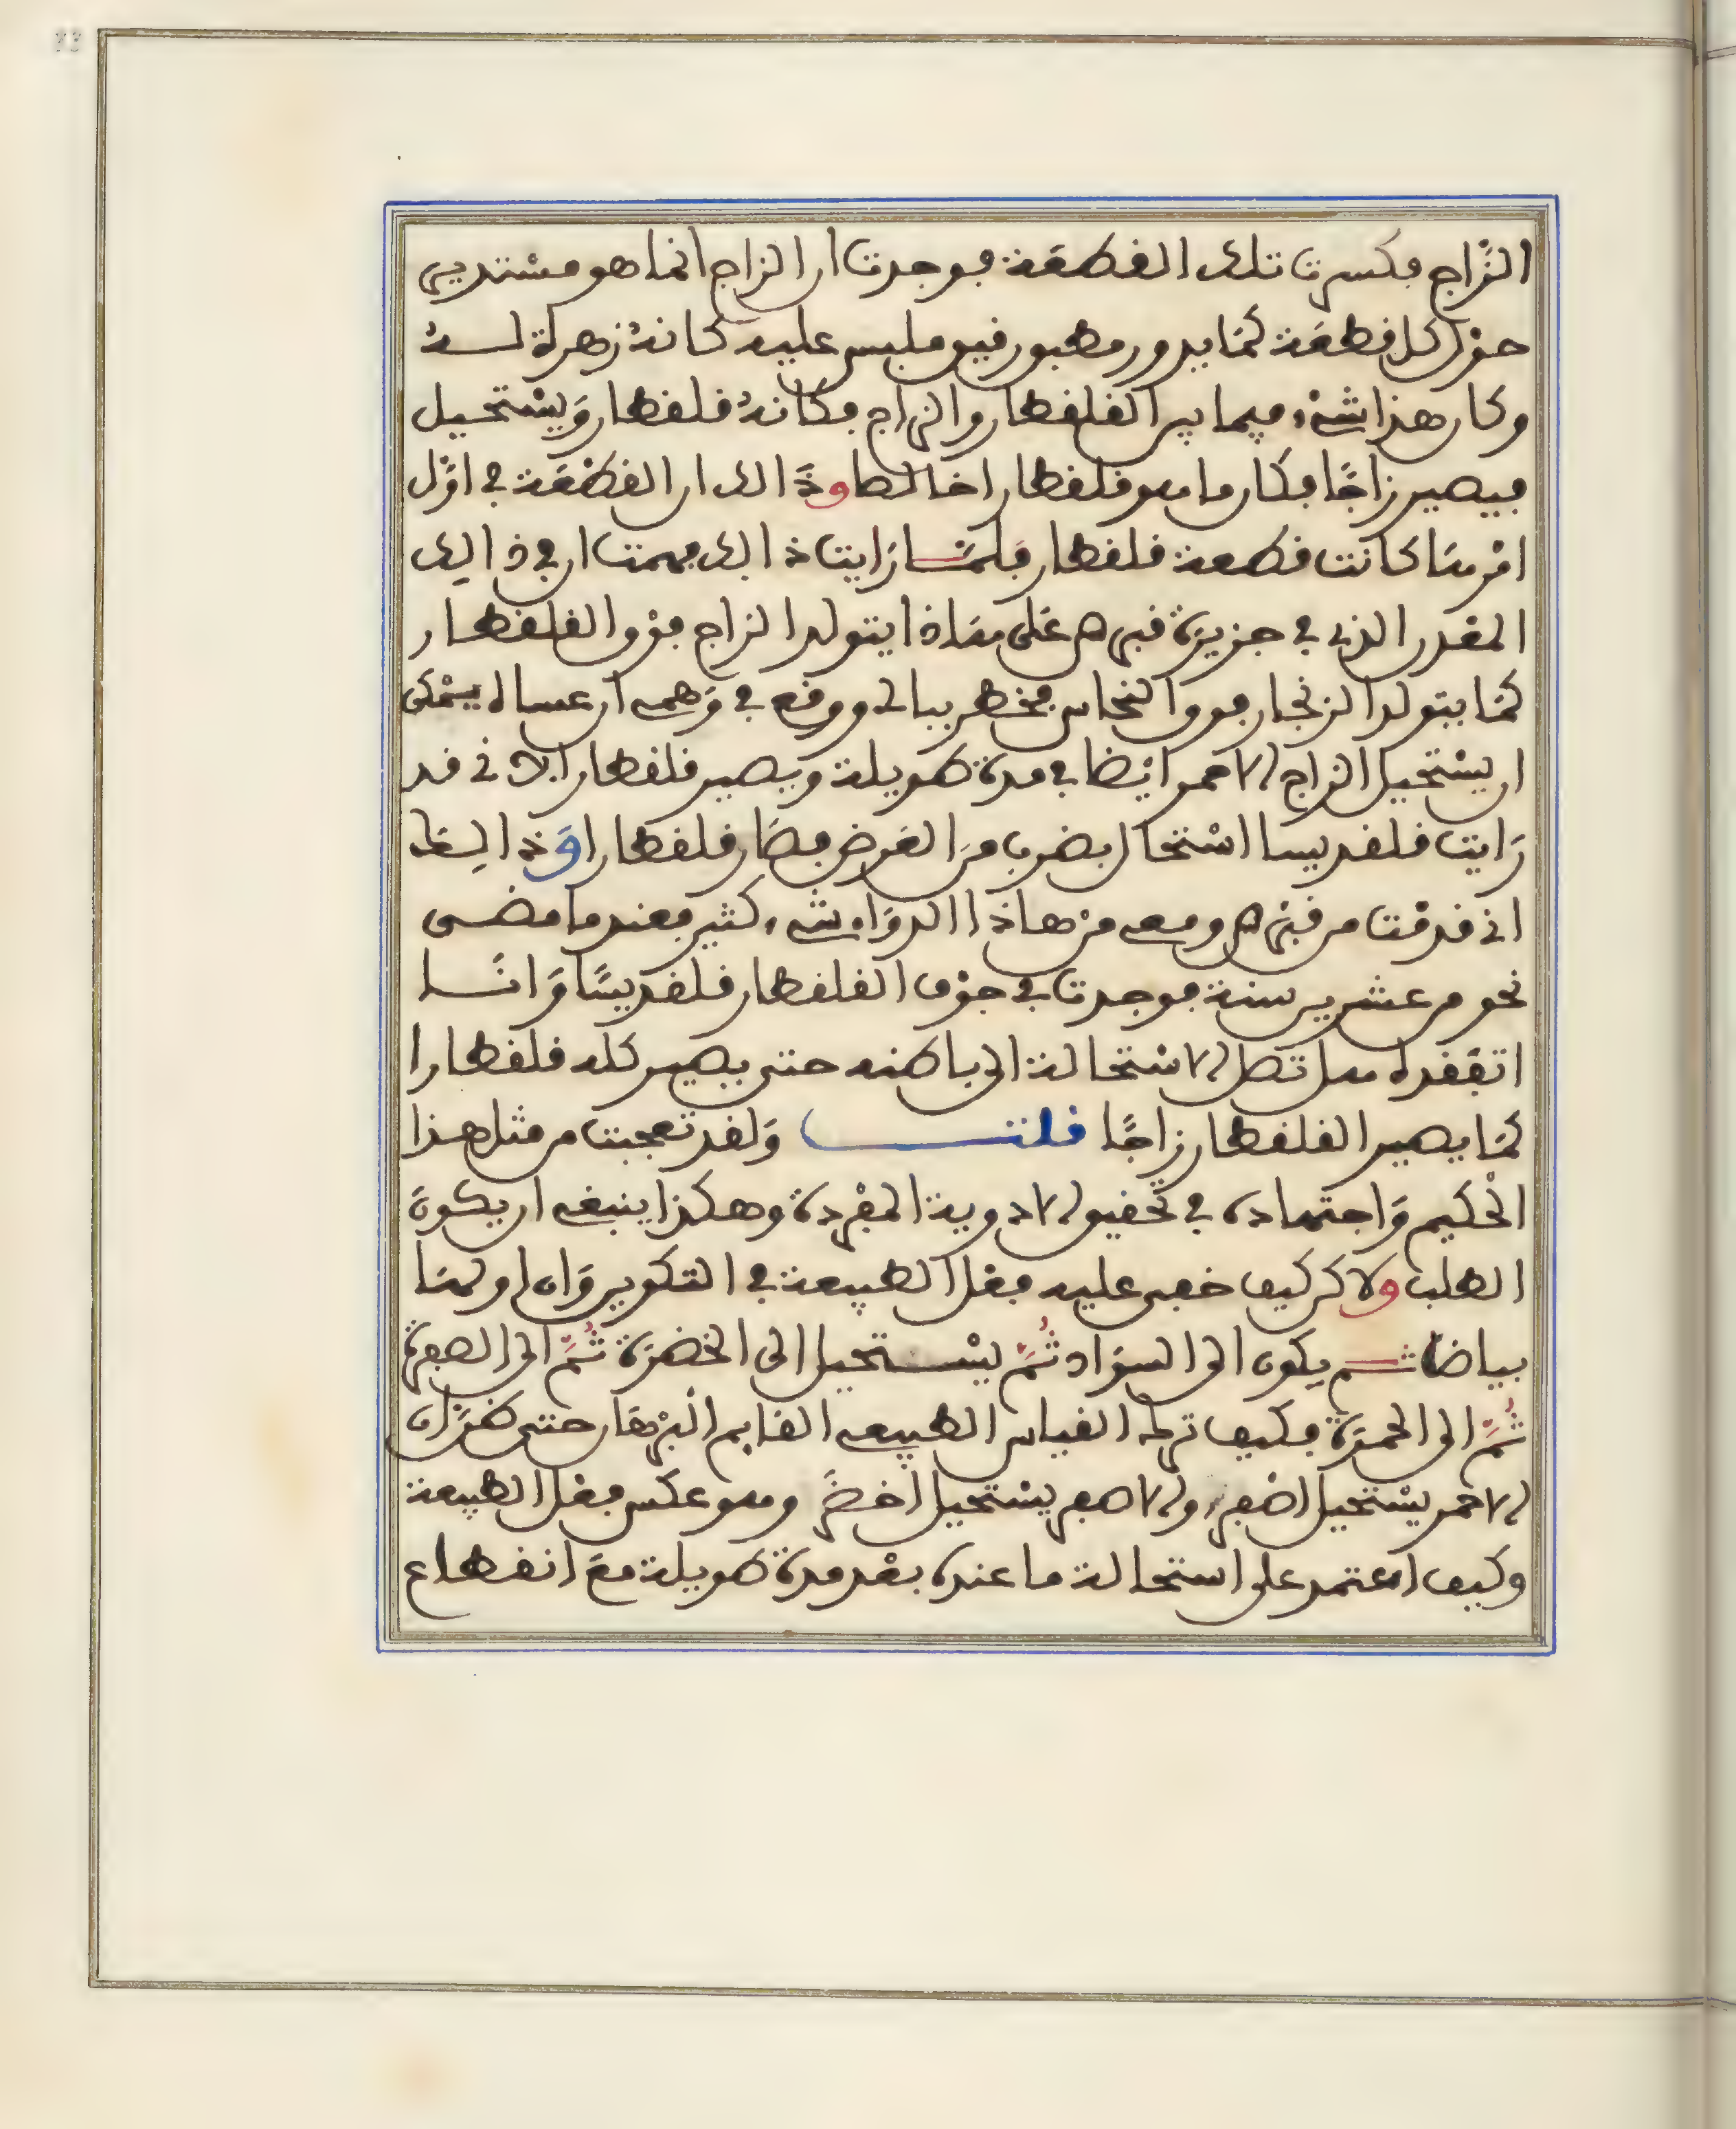 الزَّاج فكسرت تلك القطعَة فوجدت ان الزاج انما هو مستدير
حول كل قطعَة كمَا يدور مطبوق فيو ملبس عليه كانهُ زهرة لـــهُ
وكان هذا شىْء فيما بين القلقطار والزاج فكانهُ قلقطار وَيستحيل
فيصير زاجًا فكان ما هو قلقطار اخالطا وذَالك ان القطعَة في اوَّل
امْرهَا كانت قطعة قلقطار فلمَّا رَايت ذالك فهمت ان في ذالك
المعدن الذي في جزيرة قبرص عَلى هَاذا يتولد الزاج فوْق القلقطار
كمَا يتولد الزنجار فوق النحاس فخطر ببالي ووقع في وَهمي ان عسا ان يمْكن
ان يسْتحيل الزاج الاحمر ايْضا في مدة طويلة ويصير قلقطارا لاني قد
رَايت قلقديسا اسْتحال بضرب مّن العَرض فصَار قلقطارا وَذالـك
اني قدمْت من قبرص ومعي منْ هاذا الدوَاء شىء كثير فعندما مضـى
نحو من عشرين سنة فوجدت في جوْف القلقطار قلقديسًا وَانــا
اتفقده هل تصل الاسْتحالة الى باطنه حتى يصير كله قلقطارا
كمَا يصير القلقطار زاجًا قلتـــــ وَلقد تعجبت من مثل هـذا
الْحكيم وَاجتهاده في تحقيق الادوية المفْردة وهكذا ينبغي ان يكونَ
الطلب ولاكن كيف خفي عليه فعْل الطبيعة في التكوين وَان اولهَا
بياضا ثــم يكون الى السوَاد ثُمَّ يسْــتحيل الى الخضرَة ثُمَّ الى الصفرة
ثُمَّ الى الحمرَة فكيف ترك القياس الطبيعي القايم الْبرْهَان حتى ظنّ ان
الاحْمر يسْتحيل اصْفر والاصفر يسْتحيل اخضَرَ وهو عكس فعْل الطبيعة
وكيف اعتمد على استحالة ما عنده بعْد مدة طويلة معَ انقطاع